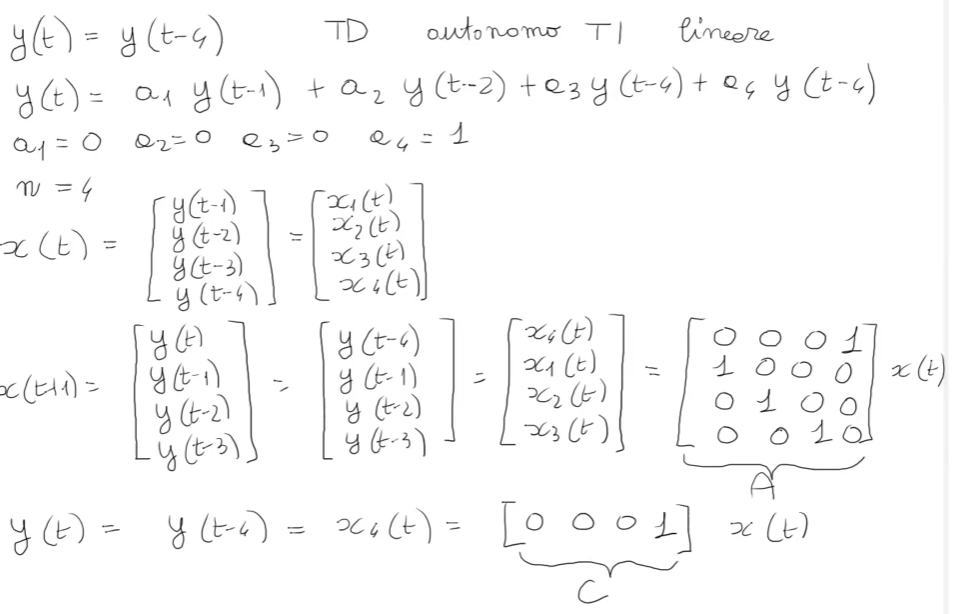 y(t) = y(t-4) TD autonomo TI lineare
y(t) = a1 y(t-1) + a2 y(t-2) + a3 y(t-4) + a4 y(t-4)
a1 = 0 a2 = 0 a3 = 0 a4 = 1
n = 4
x(t) = [y(t-1) y(t-2) y(t-3) y(t-4)] = [x1(t) x2(t) x3(t) x4(t)]
x(t+1) = [y(t) y(t-1) y(t-2) y(t-3)] = [y(t-4) y(t-1) y(t-2) y(t-3)] = [x4(t) x1(t) x2(t) x3(t)] = [0 0 0 1 1 0 0 0 0 1 0 0 0 0 1 0] x(t)
A
y(t) = y(t-4) = x4(t) = [0 0 0 1] x(t)
C